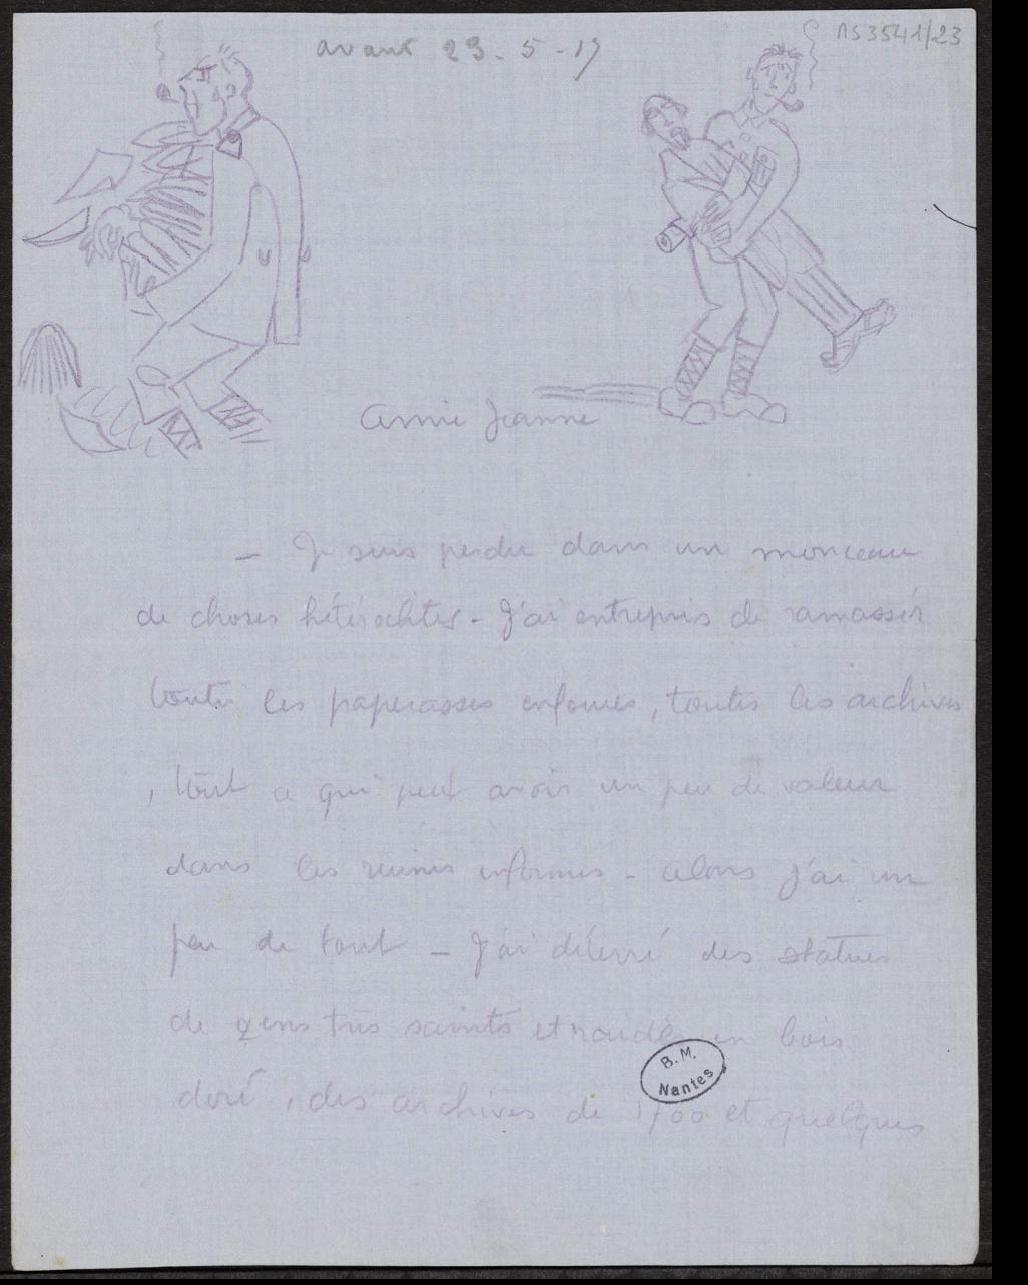 avant 23-5-17
MS3541/23
Amie Jeanne
— Je suis perdu dans un monceau
de choses hétéroclites - J'ai entrepris de ramasser
toutes les paperasses enfouies, toutes les archives
, tout ce qui peut avoir un peu de valeur
dans les ruines informes - alors j'ai un
peu de tout — J'ai déterré des statues
de gens très saints et raides en bois
B. M.
Nantes
doré, des archives de 1700 et quelques